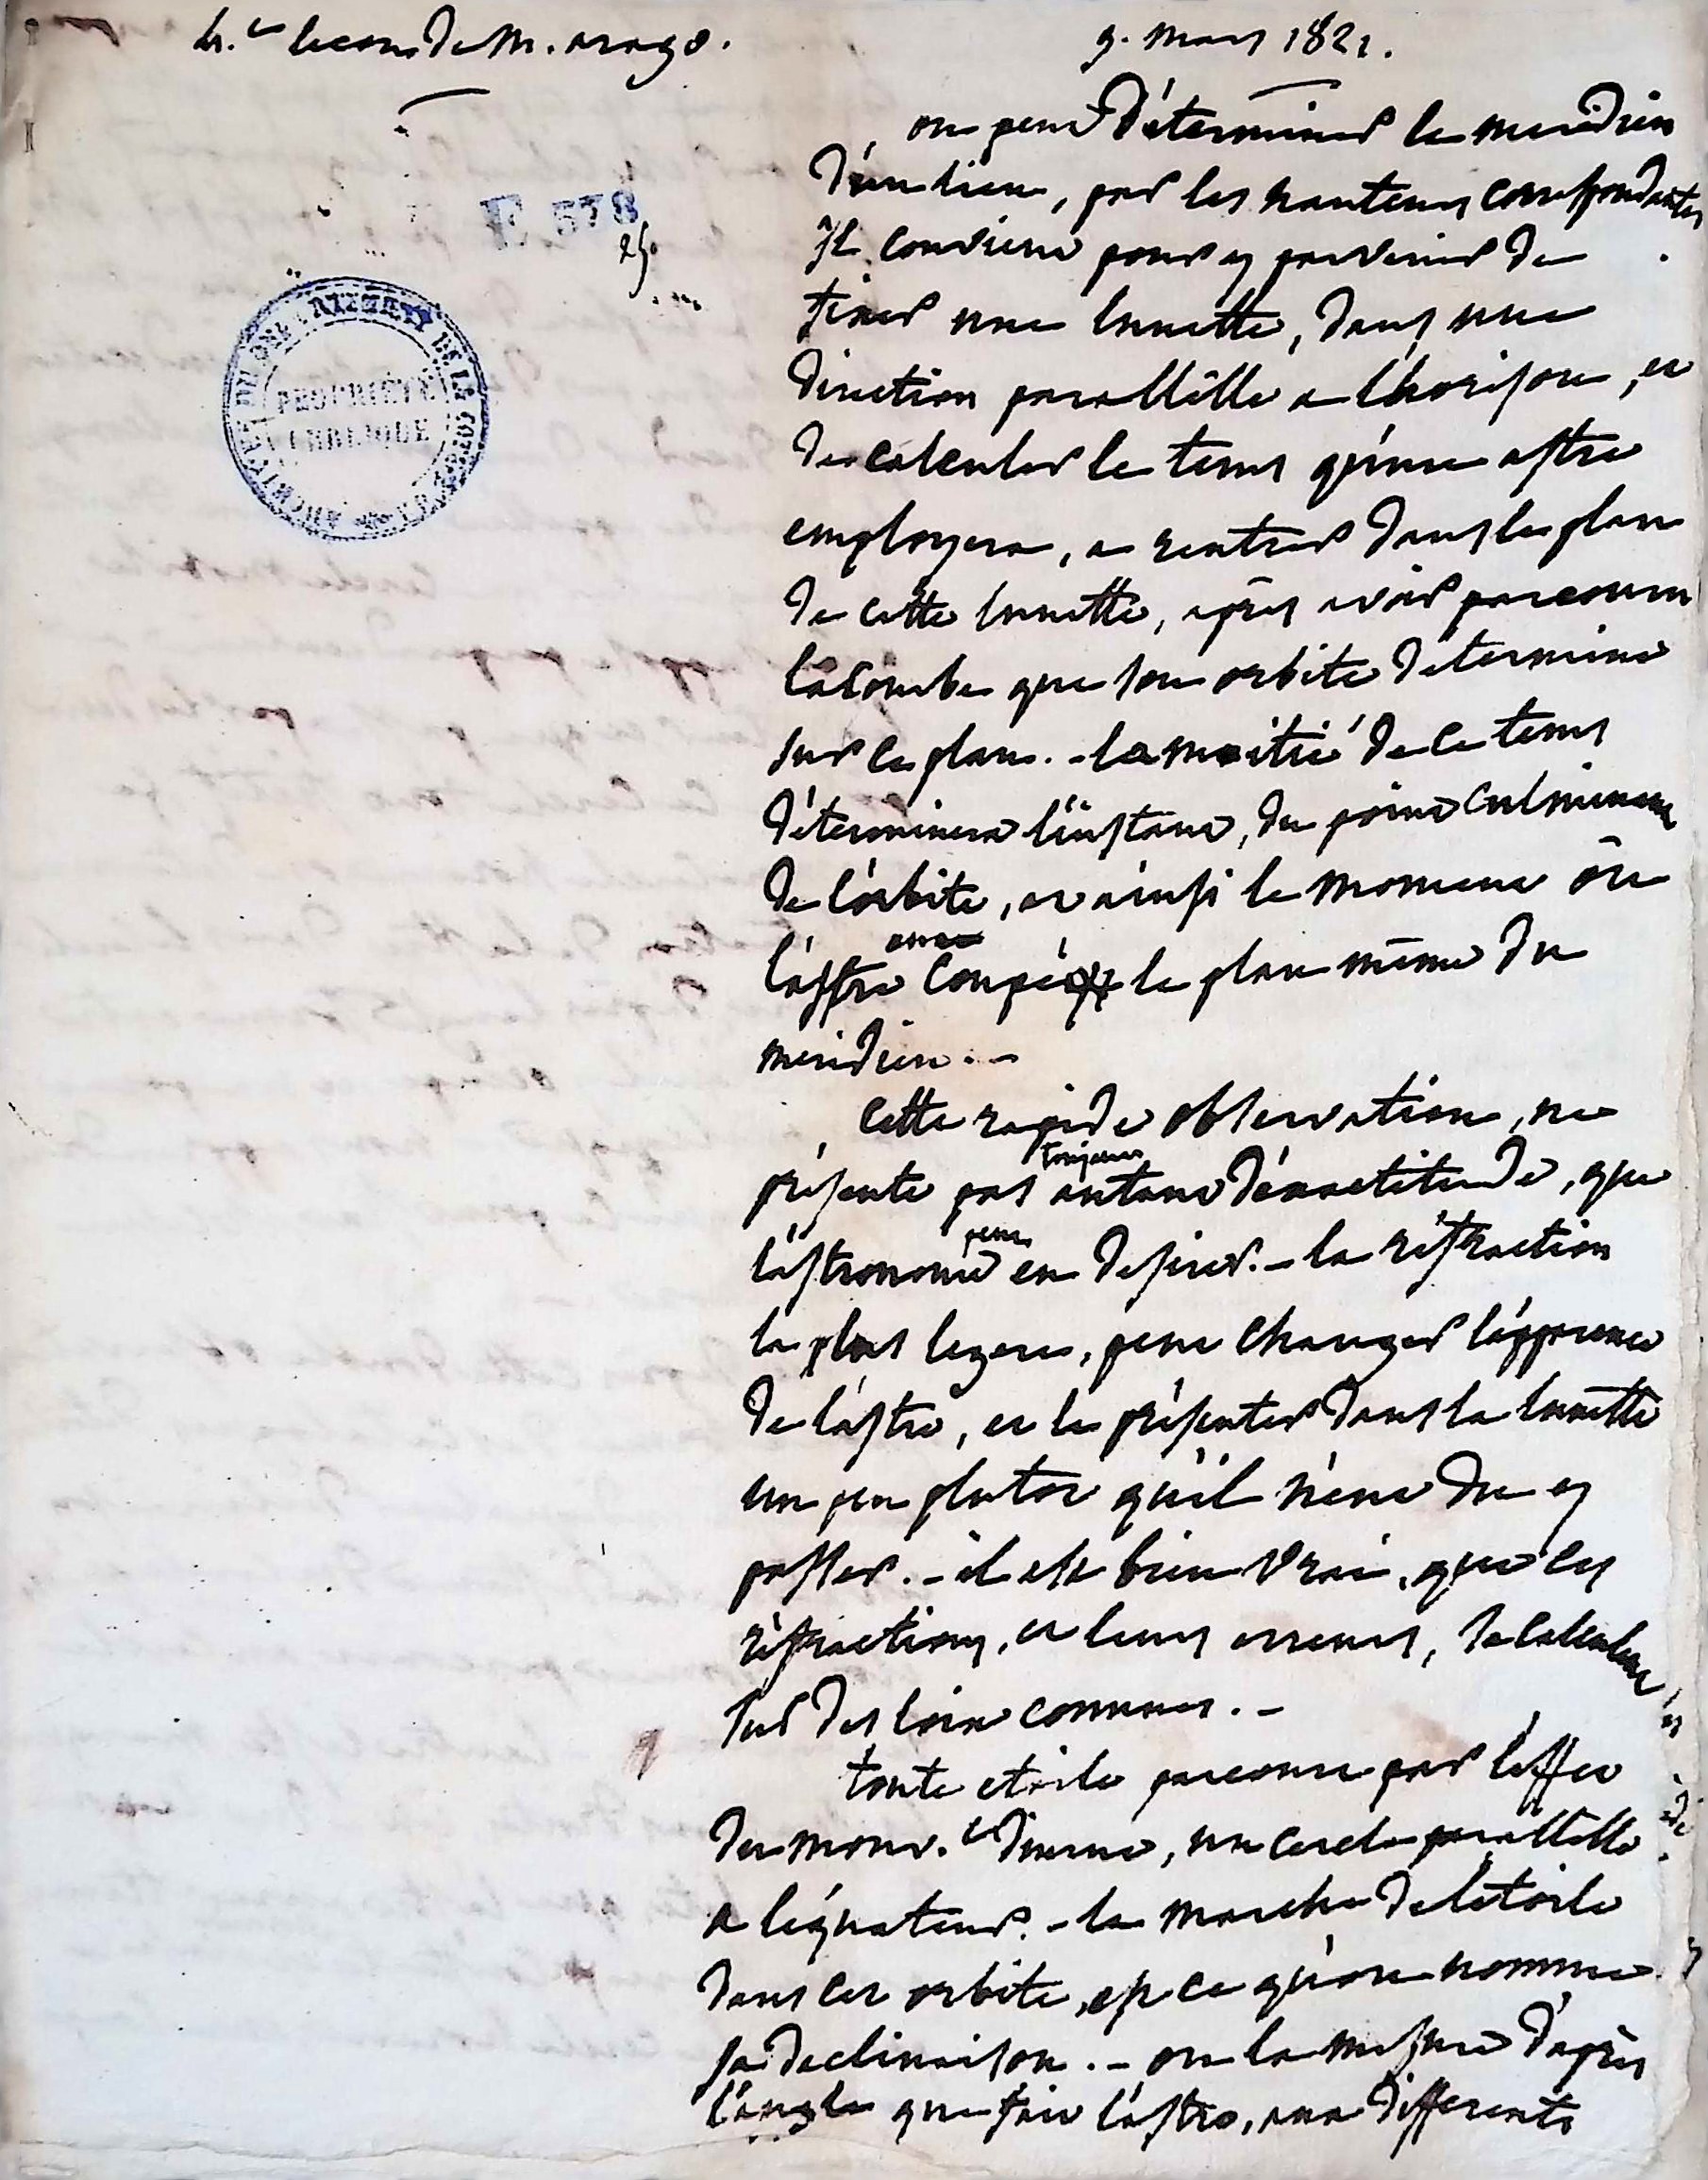 4.e lecon de M. arago.
9. mars 1821.
E 578
25.
PROPRIÉTÉ
PUBLIQUE
on peut déterminer le meridien
d'un lieu, par les hauteurs correspondantes
Il convient pour y parvenir de
fixer une lunette, dans une
direction parallèlle a l'horison, et
de calculer le tems qu'un astre
employera, a rentrer dans le plan
de cette lunette, après avoir parcouru
la courbe que son orbite determine
sur ce plan. - la moitié de ce tems
déterminera l'instant, du point culminant
de l'orbite, et ainsi le moment où
l'astre coupe le plan même du
meridien. -
cette rapide observation, ne
toujours
présente pas autant d'exactitude, que
peut
l'astronome en desirer. - la réfraction
la plus legere, peut changer l'apparence
de l'astre, et le présenter dans la lunette
un peu plutot qu'il n'eut du y
passer. - il est bien vrai, que les
réfractions, et leurs erreurs, se calculent
sur des loix connues. -
toute etoile parcourt par l'effet
du mouv.t diurne, un cercle parallelle
a l'équateur. - la marche de l'étoile
dans cet orbite, est ce qu'on nomme
sa declinaison. - on la mesure d'après
l'angle que fait l'astre, aux differents